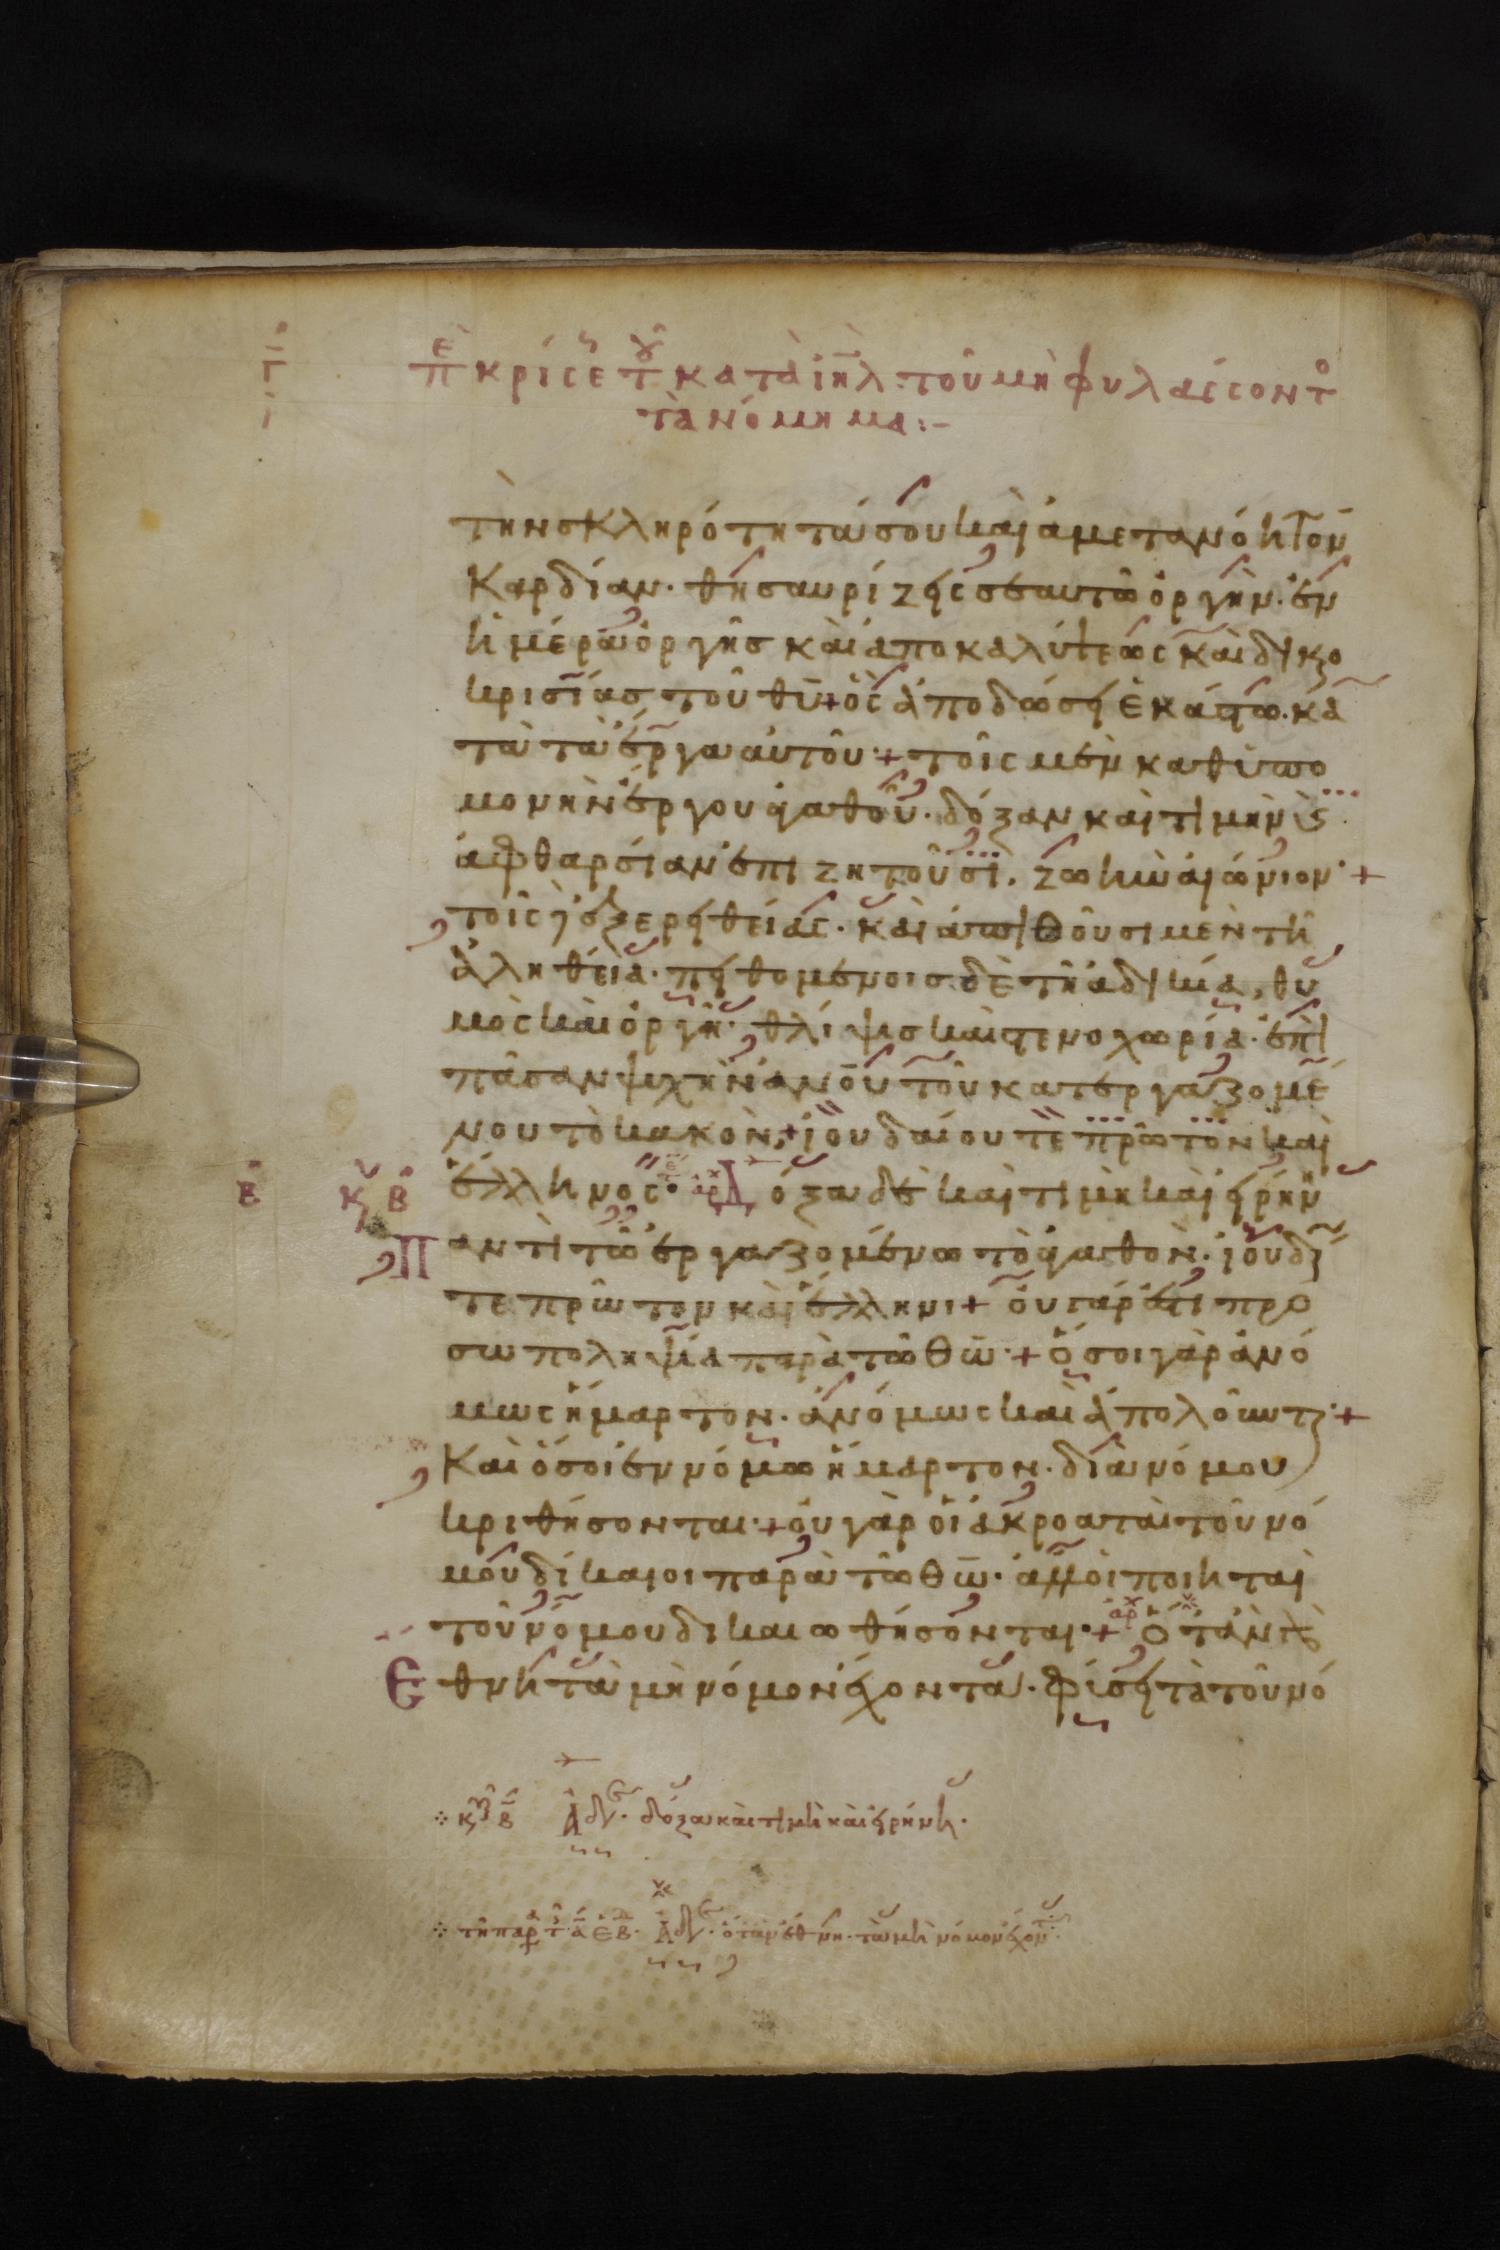 Γ πε κρίσε τ κατὰ ιηλ· τοῦ μὴ φυλάσσοντο
τὰ νόμημα:-
τὴν σκληρότητά σου καὶ ἀμετανόητον
καρδίαν· θησαυρίζεις σεαυτῶ ὀργὴν· ἐν
ἡμέρα ὀργῆς καὶ ἀποκαλύψεως καὶ δικαιο
κρισίας τοῦ θυ + ὃς ἀποδώσει ἑκάστω· κα
τὰ τὰ ἔργα αὐτοῦ· + τοῖς μὲν καθ ὑπο
μονὴν ἔργου ἀγαθοῦ· δόξαν καὶ τιμὴν καὶ
ἀφθαρσίαν ἐπιζητοῦσι, ζωὴν αἰώνιον· +
τοῖς δὲ ἐξ ἐρηθείας· καὶ ἀπιθοῦσι μὲν τῆ
ἀληθεία· πηθομένοις δὲ τῆ ἀδικία, θυ
μὸς καὶ ὀργὴ· θλίψις καὶ στενοχωρία· ἐπὶ
πᾶσαν ψυχὴν ανου τοῦ κατεργαζομέ
νου τὸ κακὸν, + ἰουδαίου τε πρῶτον καὶ
Β κυ Β ἕλληνος· αρχ Δόξα δὲ καὶ τιμὴ καὶ εἰρήνη
Παντὶ τῶ ἐργαζομένω τὸ ἀγαθὸν· ἰουδαί
τε πρῶτον καὶ ἕλληνι + οὐ γάρ ἐστι προ
σωποληψία παρὰ τῶ θω· + ὅσοι γὰρ ἀνό
μως ἥμαρτον· ἀνόμως καὶ ἀπολοῦνται· +
Καὶ ὅσοι ἐν νόμω ἥμαρτον· διὰ νόμου
κριθήσονται· + οὐ γὰρ οἱ ἀκροαταὶ τοῦ νό
μου δίκαιοι παρὰ τῶ θω· ἀλλ οἱ ποιηταὶ
τοῦ νόμου δικαιωθήσονται· + αρχ ὅταν
Εθνη τὰ μὴ νόμον ἔχοντα· φύσει τὰ τοῦ νό
κυ Β Ἀδλ· δόξα καὶ τιμὴ καὶ εἰρήνη·
τῆ παρ Ἀδλ· ὅταν ἔθνη· τὰ μὴ νόμον ἔχον